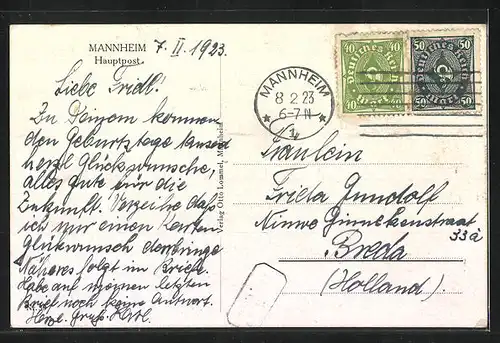 MANNHEIM
Hauptpost
7. II. 1923.
Liebe Friedl!
Zu Deinem kommenden
Geburtstage tausend
herzl. Glückwunsche,
alles Gute für die
Zukunft. Verzeihe daß
ich nur einen Karten
Glückwunsch darbringe
Näheres folgt im Briefe.
Habe auf meinen letzten
Brief noch keine Antwort.
Herzl. Gruß
Verlag Otto Lommel, Mannheim
40 40
Deutsches Reich
40 Mark 40
50 50
Deutsches Reich
50 Mark 50
MANNHEIM
8 2 23
6-7 N
* 1 *
Fräulein
Frieda Gundolf
Nieuwe Ginnekenstraat
33a
Breda
(Holland).